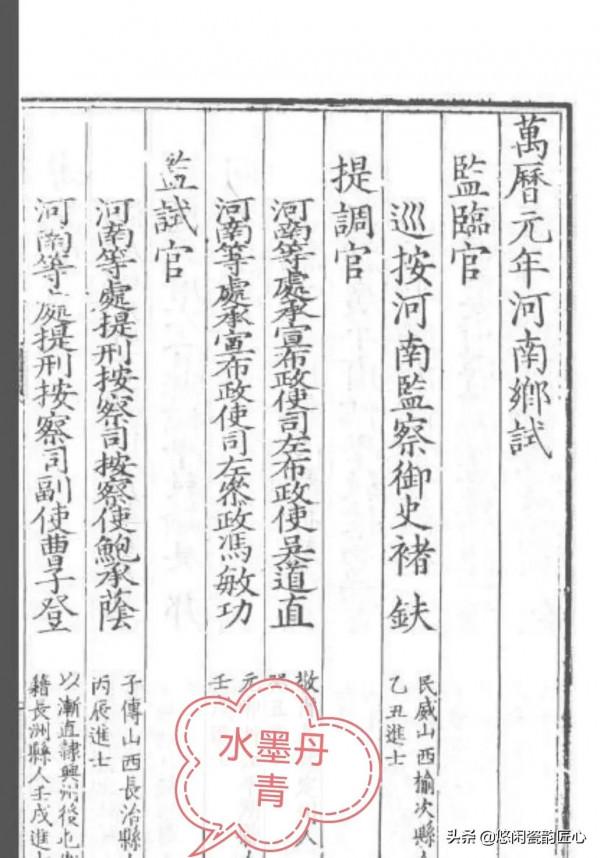 萬曆元年河南鄉試
監臨官
巡按河南監察御史褚鈇
民威山西榆次縣
乙丑進士
提調官
河南等處承宣布政使司左布政使吴道直
河南等處承宣布政使司左參政馮敏功
监試官
河南等處提刑按察司按察使鮑承蔭
子傳山西長治縣
丙辰進士
河南等處提刑按察司副使曹子登
以漸直隸興州後屯
籍長洲縣人壬戌進
水墨丹
青
头条 @悠闲瓷韵匠心